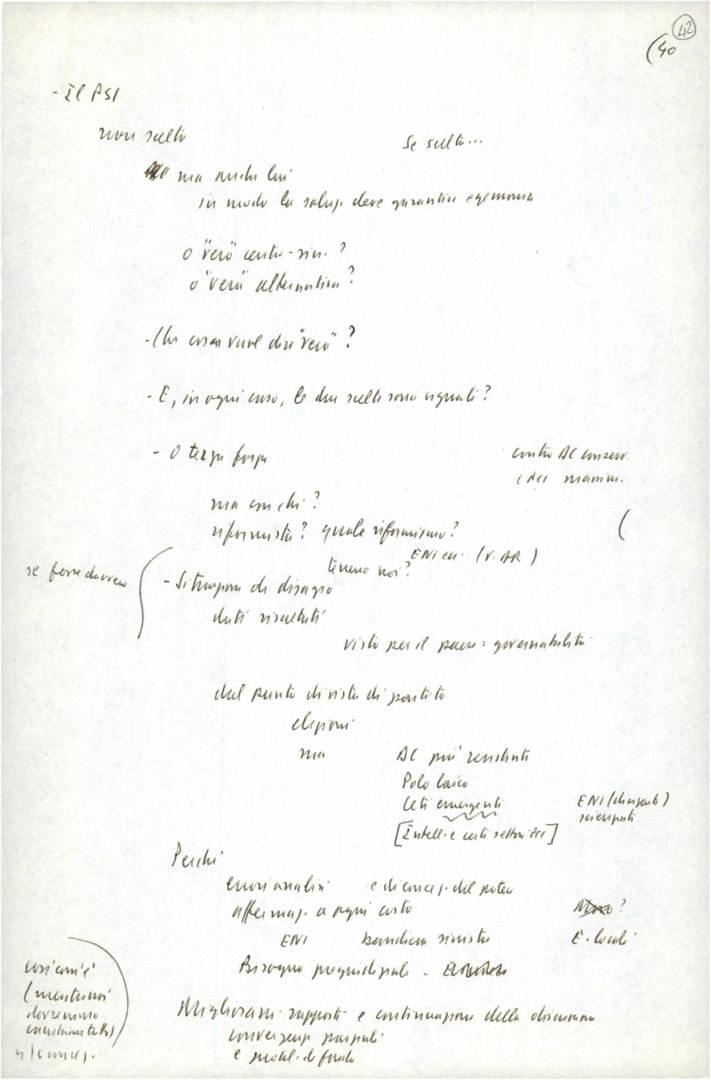 42
(40
- Il PSI
non scelto
Se scelto...
ma anche lui
in modo la soluz. deve garantire egemonia
o "vero" centro-sin.?
o "vera" alternativa?
- Che cosa vuol dire "vero"?
- E, in ogni caso, le due scelte sono uguali?
- O terza forza
contro DC conserv.
ma con chi?
riformista? quale riformismo?
ENI ecc. (v. AR)
noi?
- Situazione di disagio
dati risultati
visto per il paese: governabilità
dal punto di vista di partito
elezioni
ma
DC più
Polo laico
Ceti emergenti
ENI (dirigenti)
[Intell. e certi settori]
Perché
errori analisi e di concez. del potere
affermaz. a ogni costo
?
ENI bandiera sinistra
E. locali
Bisogna
così com'è
(mentre noi
dovremmo
concez.
Migliorare rapporti e continuazione della discussione
convergenze parziali
e probl. di fondo